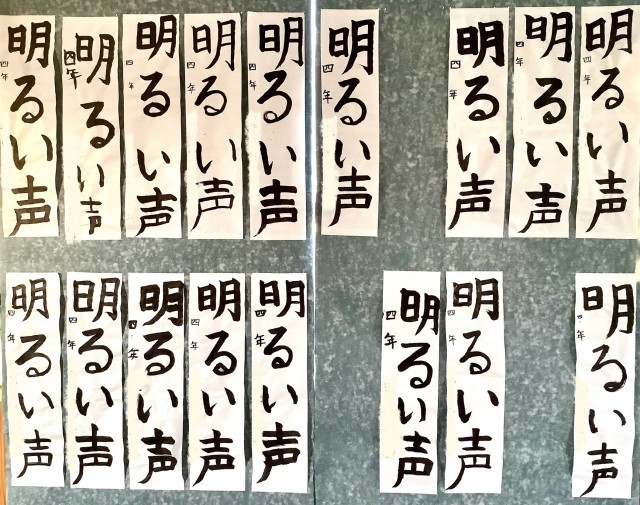 明るい声
四年
明るい声
四年
明るい声
四年
明るい声
四年
明るい声
四年
明るい声
四年
明るい声
四年
明るい声
四年
明るい声
四年
明るい声
四年
明るい声
四年
明るい声
四年
明るい声
四年
明るい声
四年
明るい声
四年
明るい声
四年
明るい声
四年